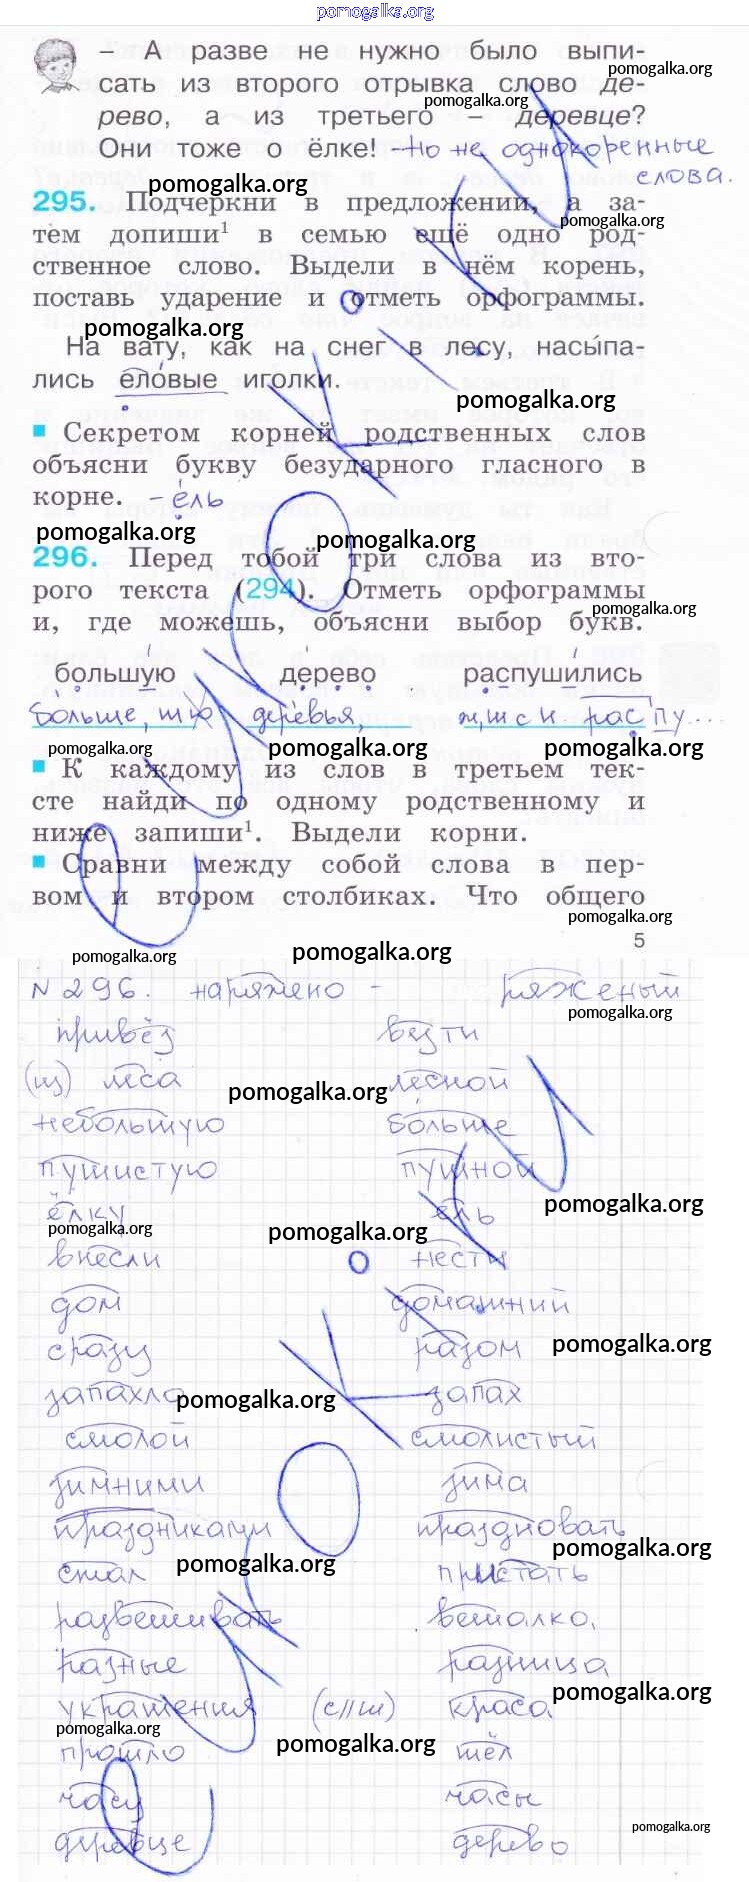 pomogalka.org
– А разве не нужно было выпи-
pomogalka.org
сать из второго отрывка слово де-
pomogalka.org
рево, а из третьего – деревце?
Они тоже о ёлке! – Но не однокоренные
слова.
pomogalka.org
295. Подчеркни в предложении, а за-
pomogalka.org
тем допиши¹ в семью ещё одно род-
ственное слово. Выдели в нём корень,
поставь ударение и отметь орфограммы.
pomogalka.org
На вату, как на снег в лесу, насы́па-
лись еловые иголки.
pomogalka.org
Секретом корней родственных слов
объясни букву безударного гласного в
корне. – ель
pomogalka.org
pomogalka.org
296. Перед тобой три слова из вто-
рого текста (294). Отметь орфограммы
pomogalka.org
и, где можешь, объясни выбор букв.
большую дерево распушились
больше, деревья,
pomogalka.org pomogalka.org pomogalka.org
К каждому из слов в третьем тек-
сте найди по одному родственному и
ниже запиши¹. Выдели корни.
Сравни между собой слова в пер-
вом и втором столбиках. Что общего
pomogalka.org
5
pomogalka.org pomogalka.org
№ 296. наряжено – ряженый
pomogalka.org
привёз везти
(из) леса лесной
pomogalka.org
небольшую больше
пушистую пушной
ёлку ель
pomogalka.org
pomogalka.org pomogalka.org
внесли нести
дом домашний
сразу разом
pomogalka.org
запахло запах
pomogalka.org
смолой смолистый
зимними зима
праздниками праздновать
pomogalka.org
pomogalka.org
стал пристать
развешивать вешалка
разные разница
украшения (с//ш) краса
pomogalka.org
pomogalka.org pomogalka.org
прошло шёл
часу часы
pomogalka.org
деревце дерево